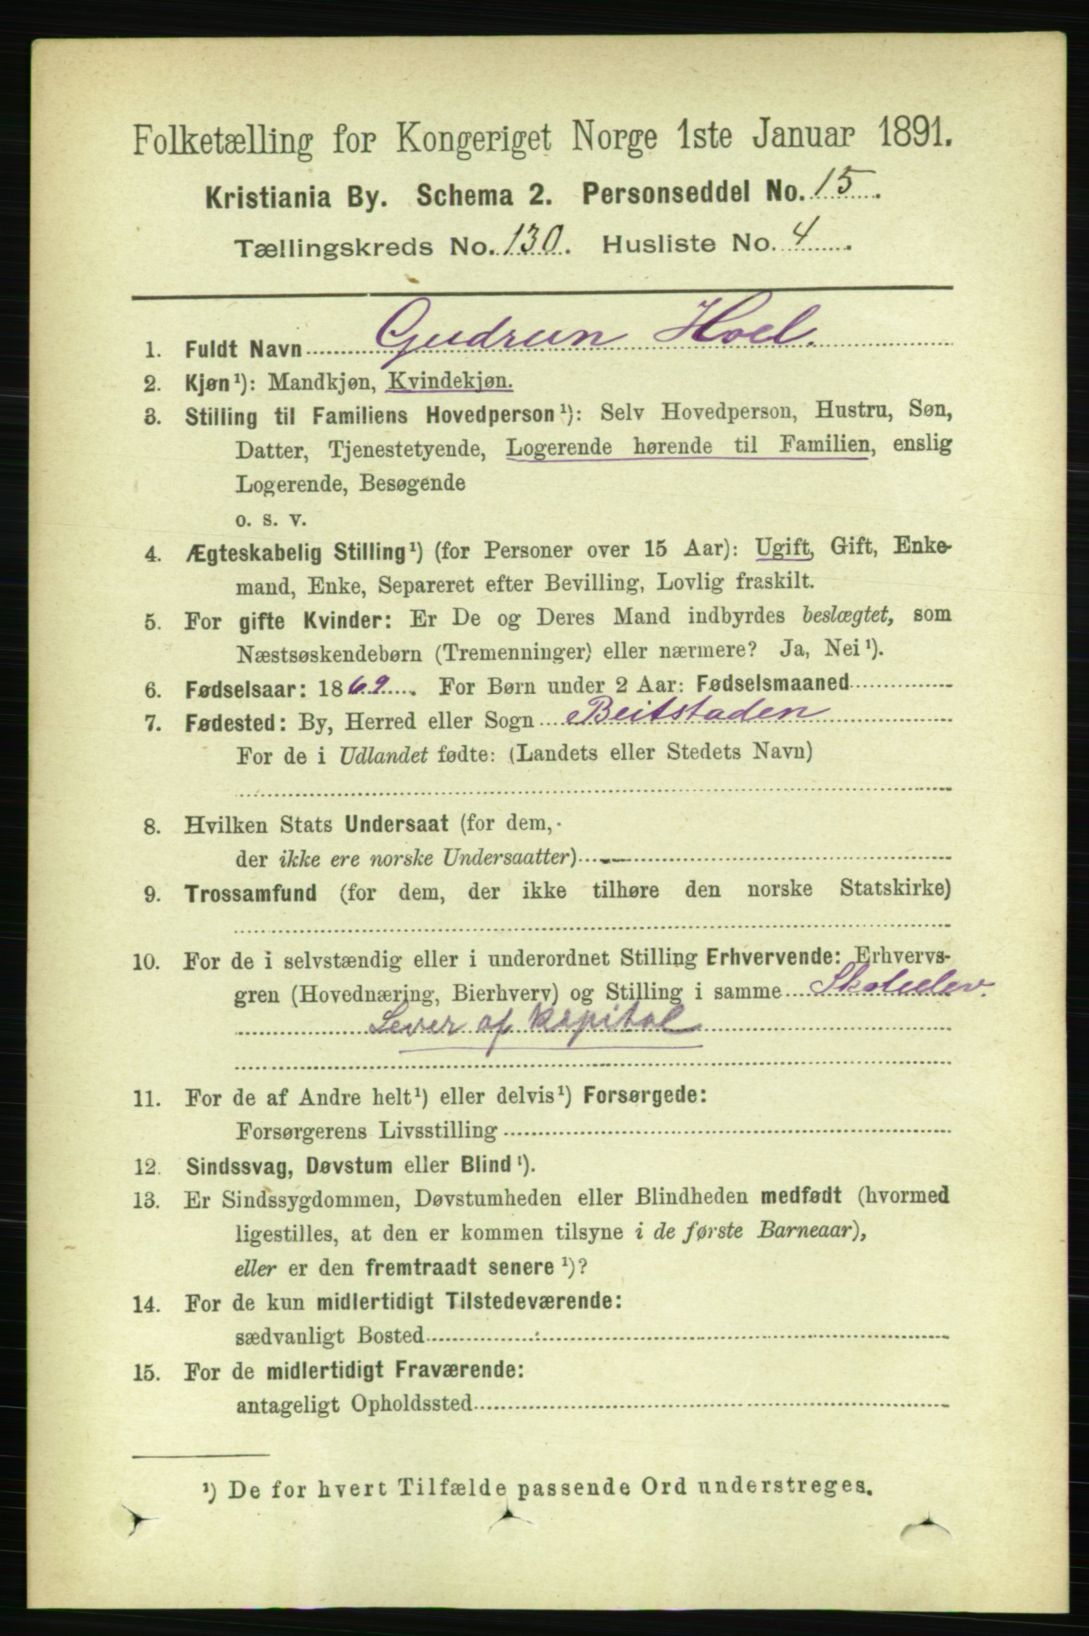 Folketælling for Kongeriget Norge 1ste Januar 1891.
Kristiania By. Schema 2. Personseddel No. 15.
Tællingskreds No. 130. Husliste No. 4.
1. Fuldt Navn Gudrun Hoel.
2. Kjøn¹): Mandkjøn, Kvindekjøn.
3. Stilling til Familiens Hovedperson¹): Selv Hovedperson, Hustru, Søn,
Datter, Tjenestetyende, Logerende hørende til Familien, enslig
Logerende, Besøgende
o. s. v.
4. Ægteskabelig Stilling¹) (for Personer over 15 Aar): Ugift, Gift, Enke-
mand, Enke, Separeret efter Bevilling, Lovlig fraskilt.
5. For gifte Kvinder: Er De og Deres Mand indbyrdes beslægtet, som
Næstsøskendebørn (Tremenninger) eller nærmere? Ja, Nei¹).
6. Fødselsaar: 1869. For Børn under 2 Aar: Fødselsmaaned
7. Fødested: By, Herred eller Sogn Beitstaden
For de i Udlandet fødte: (Landets eller Stedets Navn)
8. Hvilken Stats Undersaat (for dem,
der ikke ere norske Undersaatter)
9. Trossamfund (for dem, der ikke tilhøre den norske Statskirke)
10. For de i selvstændig eller i underordnet Stilling Erhvervende: Erhvervs-
gren (Hovednæring, Bierhverv) og Stilling i samme Skoleelev.
Lever af kapital
11. For de af Andre helt¹) eller delvis¹) Forsørgede:
Forsørgerens Livsstilling
12. Sindssvag, Døvstum eller Blind¹).
13. Er Sindssygdommen, Døvstumheden eller Blindheden medfødt (hvormed
ligestilles, at den er kommen tilsyne i de første Barneaar),
eller er den fremtraadt senere¹)?
14. For de kun midlertidigt Tilstedeværende:
sædvanligt Bosted
15. For de midlertidigt Fraværende:
antageligt Opholdssted
¹) De for hvert Tilfælde passende Ord understreges.